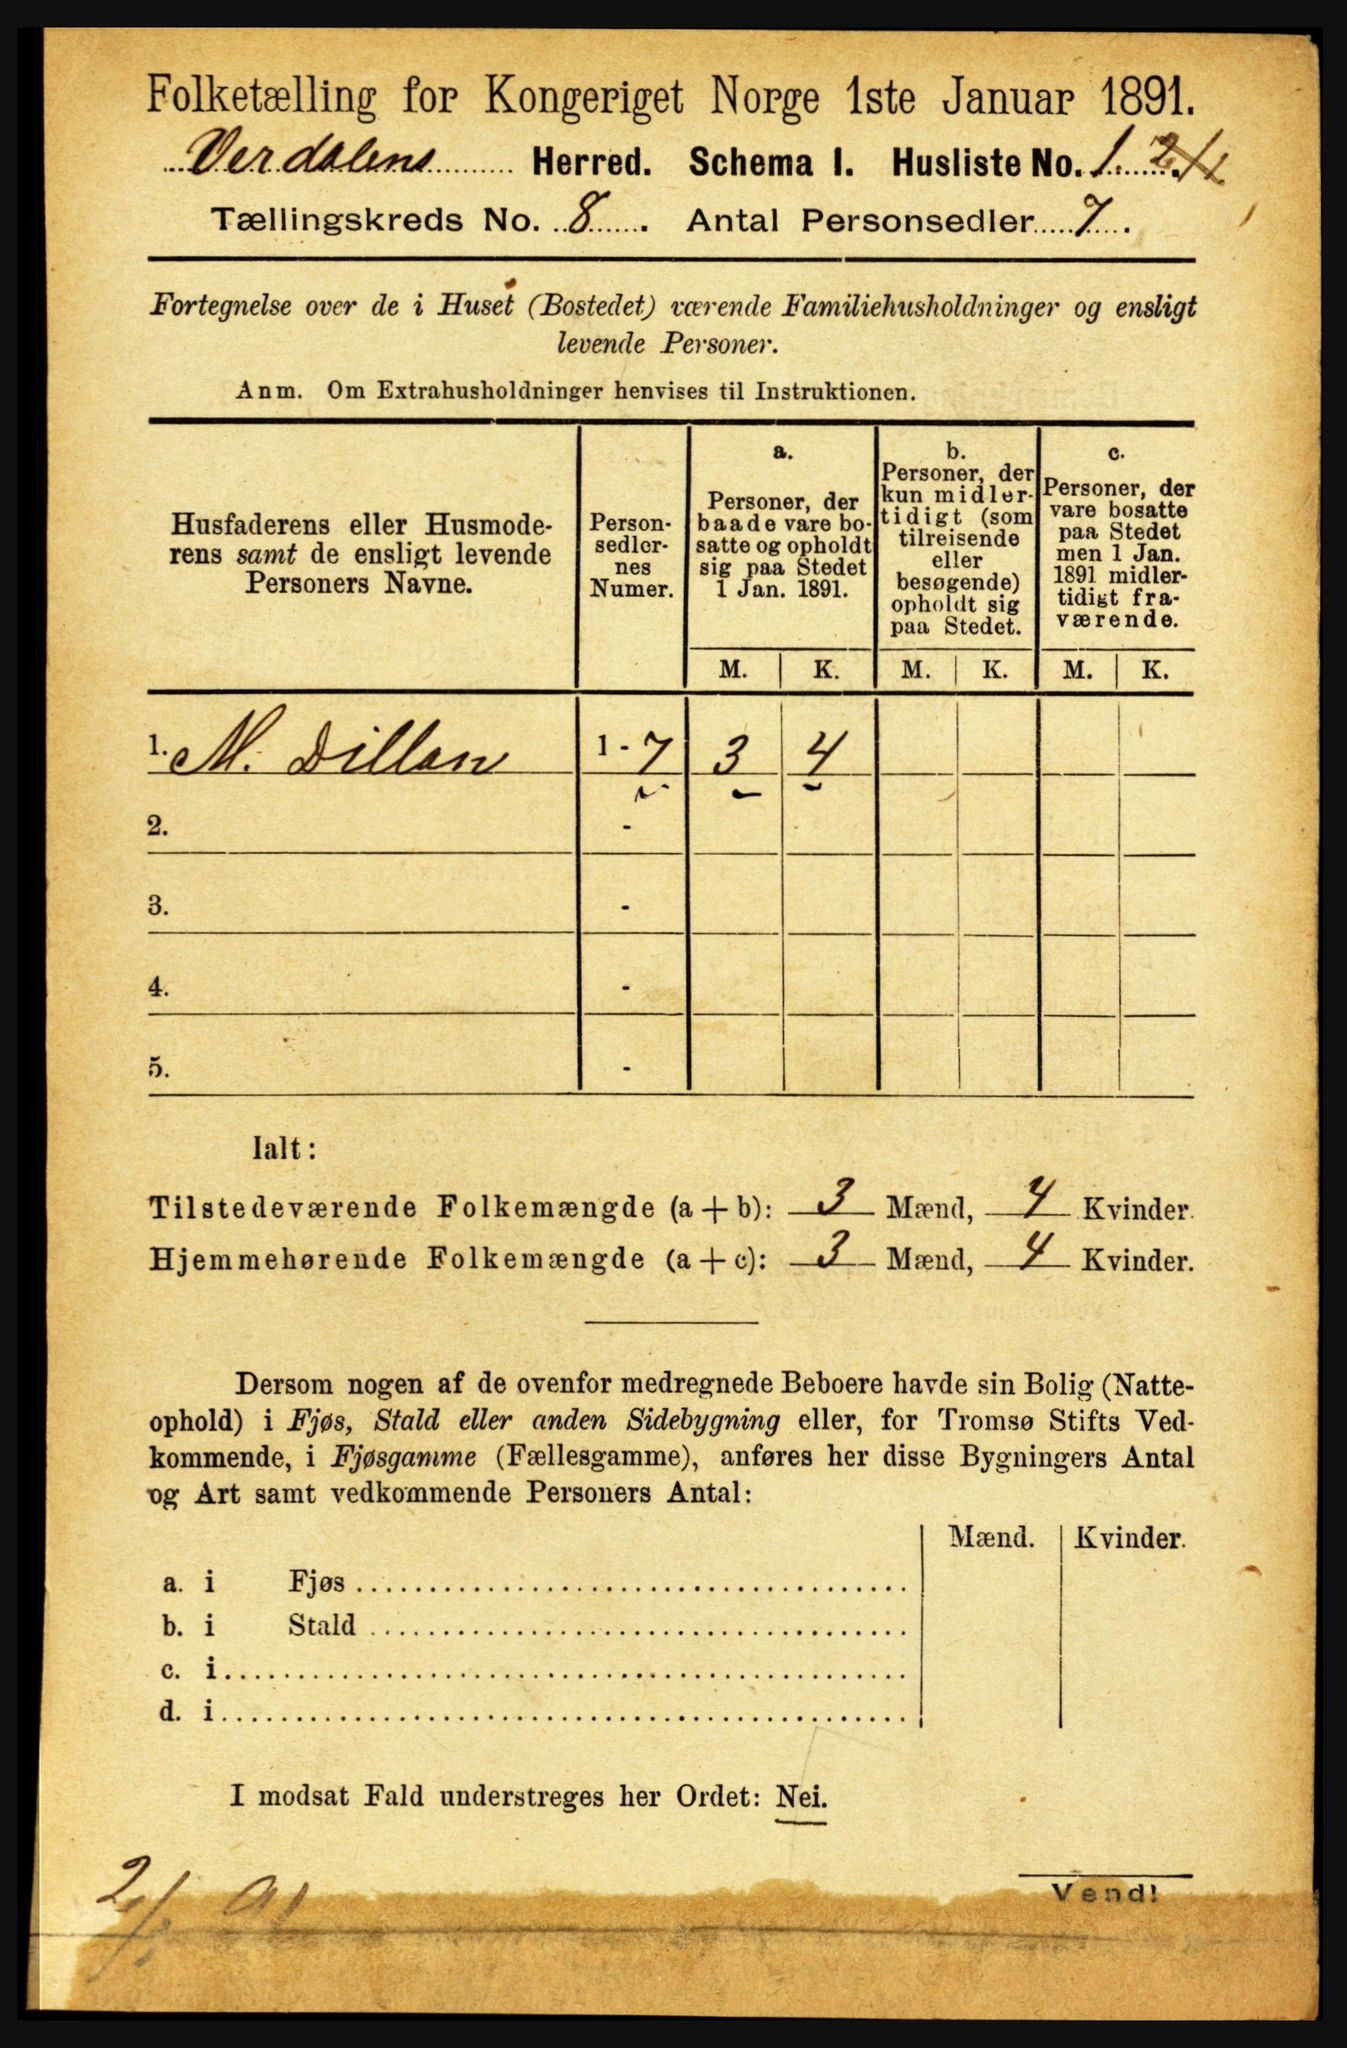 Folketælling for Kongeriget Norge 1ste Januar 1891.
Verdalens Herred. Schema I. Husliste No. 1.
Tællingskreds No. 8. Antal Personsedler 7.
Fortegnelse over de i Huset (Bostedet) værende Familiehusholdninger og ensligt
levende Personer.
Anm. Om Extrahusholdninger henvises til Instruktionen.
Husfaderens eller Husmode-
rens samt de ensligt levende
Personers Navne.
Person-
sedler-
nes
Numer.
a.
Personer, der
baade vare bo-
satte og opholdt
sig paa Stedet
1 Jan. 1891.
b.
Personer, der
kun midler-
tidigt (som
tilreisende
eller
besøgende)
opholdt sig
paa Stedet.
c.
Personer, der
vare bosatte
paa Stedet
men 1 Jan.
1891 midler-
tidigt fra-
værende.
M. K. M. K. M. K.
1. M. Dillan 1 - 7 3 4
2. -
3. -
4. -
5. -
Ialt:
Tilstedeværende Folkemængde (a + b): 3 Mænd, 4 Kvinder.
Hjemmehørende Folkemængde (a + c): 3 Mænd, 4 Kvinder.
Dersom nogen af de ovenfor medregnede Beboere havde sin Bolig (Natte-
ophold) i Fjøs, Stald eller anden Sidebygning eller, for Tromsø Stifts Ved-
kommende, i Fjøsgamme (Fællesgamme), anføres her disse Bygningers Antal
og Art samt vedkommende Personers Antal:
Mænd. Kvinder.
a. i Fjøs
b. i Stald
c. i
d. i
I modsat Fald understreges her Ordet: Nei.
2/1 91
Vend!